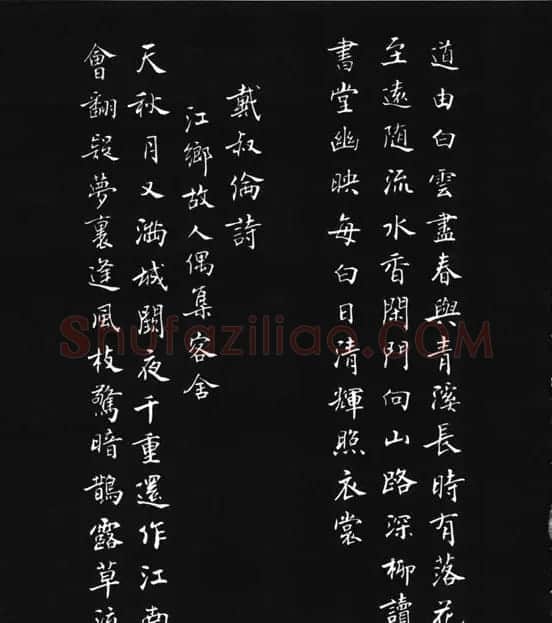 道由白雲盡春與青溪長時有落花
至遠随流水香閑門向山路深柳讀
書堂幽映每白日清輝照衣裳
戴叔倫詩
江鄉故人偶集客舍
天秋月又滿城闕夜千重還作江南
會翻疑夢裏逢風枝驚暗鵲露草
Shufaziliao.com